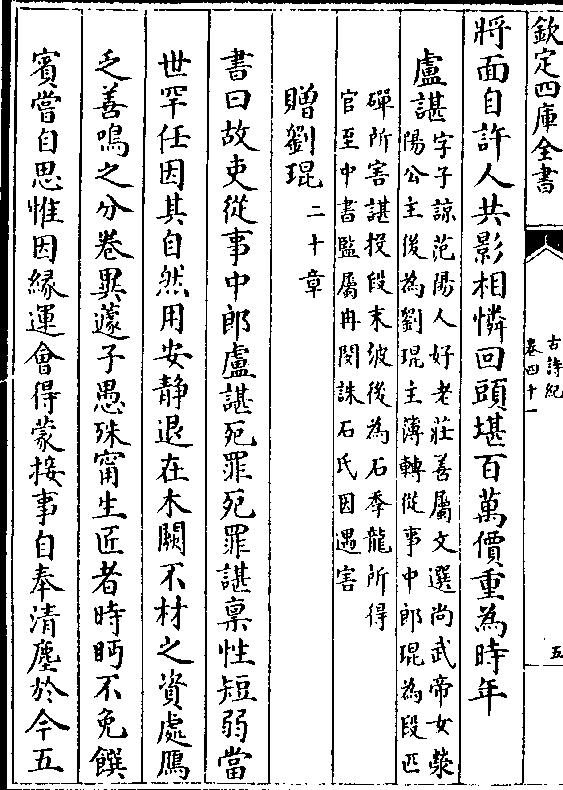 欽定四庫全書
古詩紀
卷四十一
五
將面自許人共影相憐回頭堪百萬價重為時年
盧諶
字子諒范陽人好老莊善屬文選尚武帝女滎
陽公主後為劉琨主薄轉從事中郎琨為段匹
磾所害諶投段末波後為石季龍所得
官至中書監屬冉閔誅石氏因遇害
贈劉琨二十章
書曰故吏從事中郎盧諶死罪死罪諶稟性短弱當
世罕任因其自然用安静退在木闕不材之資處鴈
乏善鳴之分卷異蘧子愚殊甯生匠者時眄不免饌
賓嘗自思惟因緣運會得蒙接事自奉清塵於今五